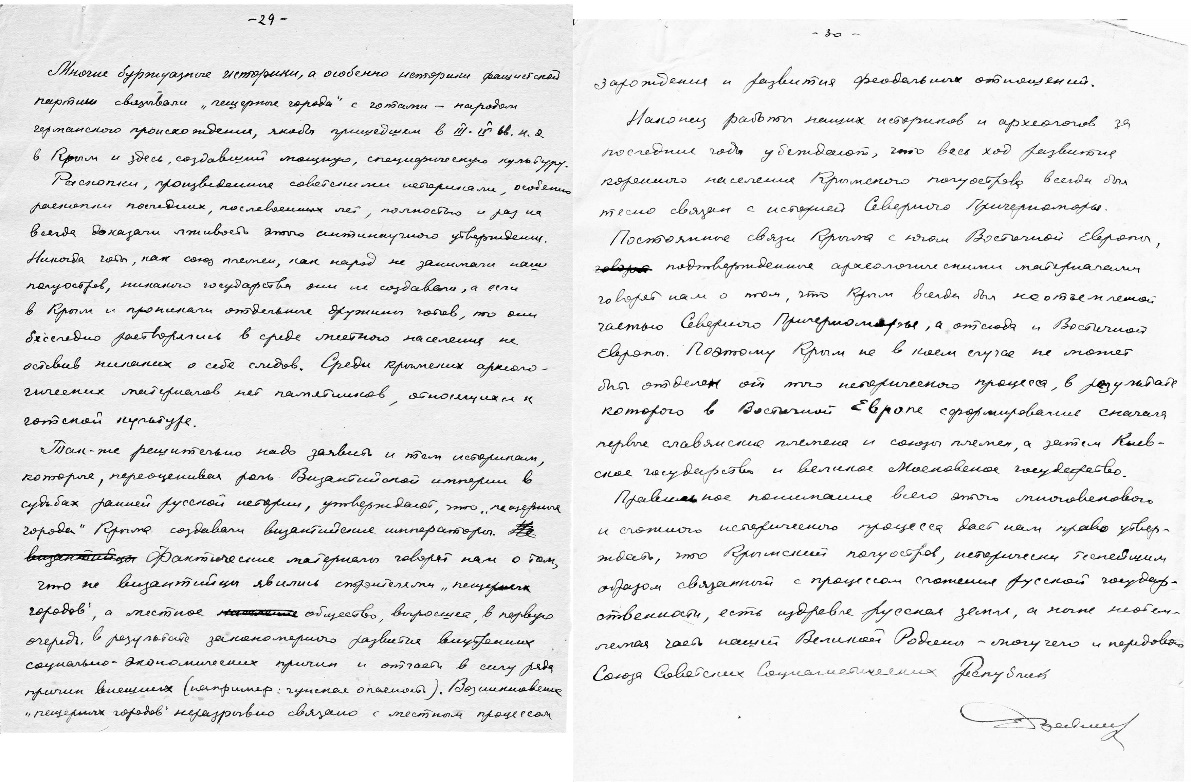 -29-
Многие буржуазные историки, а особенно историки фашистской
партии связывали „пещерные города" с готами – народом
германского происхождения, якобы пришедшем в III-IV вв. н.э.
в Крым и здесь, создавший мощную, специфическую культуру.
Раскопки, произведенные советскими историками, особенно
раскопки последних, послевоенных лет, полностью и раз на
всегда доказали лживость этого антинаучного утверждения.
Никогда готы, как союз племен, как народ не занимали наш
полуостров, никакого государства они не создавали, а если
в Крым и проникали отдельные дружины готов, то они
бесследно растворились в среде местного населения не
оставив никаких о себе следов. Среди крымских археоло-
гических материалов нет памятников, относящихся к
готской культуре.
Так-же решительно надо заявить и тем историкам,
которые, переоценивая роль Византийской империи в
судьбах ранней русской истории, утверждают, что „пещерные
города" Крыма создавали византийские императоры. Не
византийцы Фактические материалы говорят нам о том,
что не византийцы явились строителями „пещерных
городов", а местное общество, выросшее, в первую
очередь, в результате закономерного развития внутренних
социально-экономических причин и отчасти в силу ряда
причин внешних (например: гунская опасность). Возникновение
„пещерных городов" неразрывно связано с местным процессом
-30-
зарождения и развития феодальных отношений.
Наконец работы наших историков и археологов за
последние годы убеждают, что весь ход развития
коренного населения Крымского полуострова всегда был
тесно связан с историей Северного Причерноморья.
Постоянные связи Крыма с югом Восточной Европы,
говоря подтвержденные археологическими материалами
говорят нам о том, что Крым всегда был неотъемлемой
частью Северного Причерноморья, а отсюда и Восточной
Европы. Поэтому Крым не в коем случае не может
быть отделен от того исторического процесса, в результате
которого в Восточной Европе сформирование сначала
первые славянские племена и союзы племен, а затем Киев-
ское государство и великое Московское государство.
Правильное понимание всего этого многовекового
и сложного исторического процесса дает нам право утвер-
ждать, что Крымский полуостров, исторически теснейшим
образом связанный с процессом сложения русской государ-
ственности, есть издревле русская земля, а ныне неотем-
лемая часть нашей Великой Родины – могучего и передового
Союза Советских Социалистических Республик